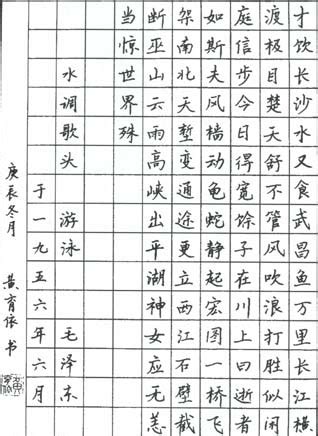 才饮长沙水又食武昌鱼万里长江横
渡极目楚天舒不管风吹浪打胜似闲
庭信步今日得宽馀子在川上曰逝者
如斯夫风樯动龟蛇静起宏图一桥飞
架南北天堑变通途更立西江石壁截
断巫山云雨高峡出平湖神女应无恙
当惊世界殊
水调歌头 游泳 毛泽东
于一九五六年六月
庚辰冬月 黄育依 书